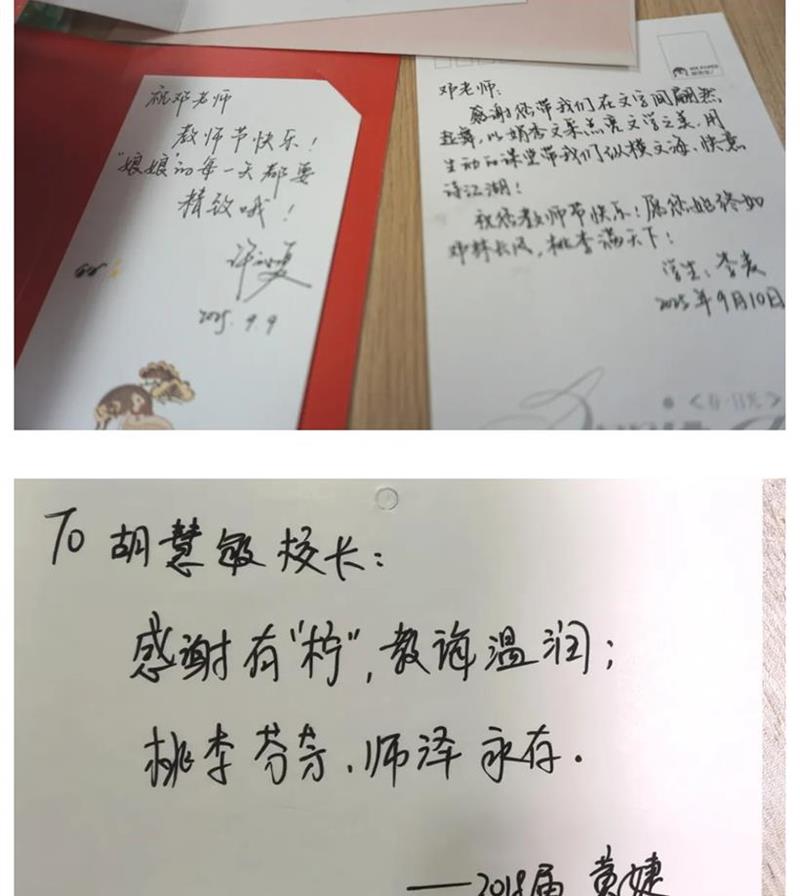 祝邓老师
教师节快乐！
"娘娘"的每一天都要
精致哦！
2025.9.9
邓老师：
感谢您带我们在文言间翩然
起舞，以娟秀文采点亮文学之美，用
生动的课堂带我们纵横文海、快意
诗江湖！
祝您教师节快乐！愿您始终如
邓林长风，桃李满天下！
学生：李
2025年9月10日
To 胡慧敏校长：
感谢有"柠"，教诲温润；
桃李芬芳，师泽永存.
——2018届 黄婕